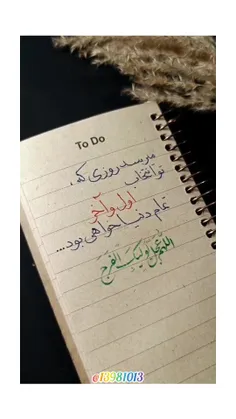 To Do
میرسد روزی که،
تو انتخاب
اول و آخر
تمام دنیا خواهی بود...
اللهم عجل لولیک الفرج
e13981013